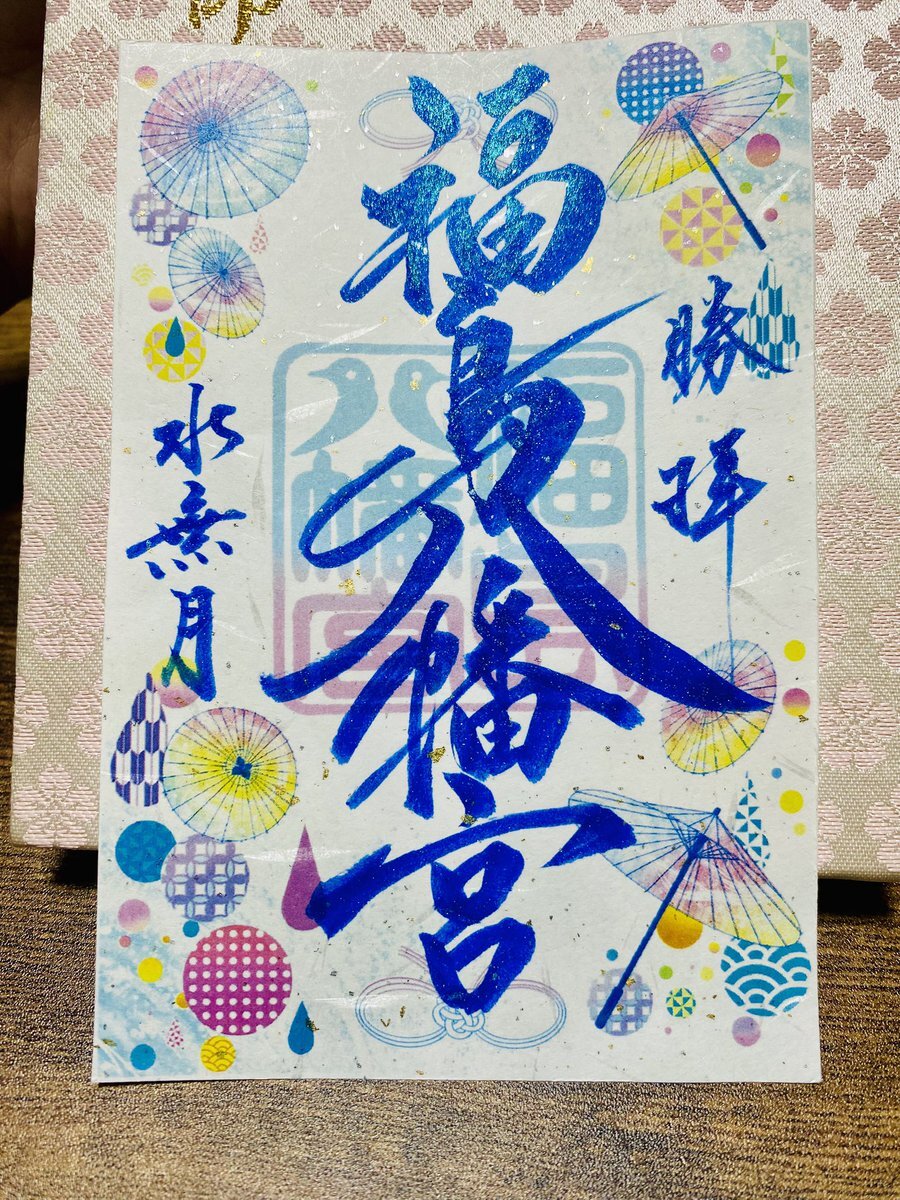 勝拝
福島八幡宮
福島
八幡宮
水無月